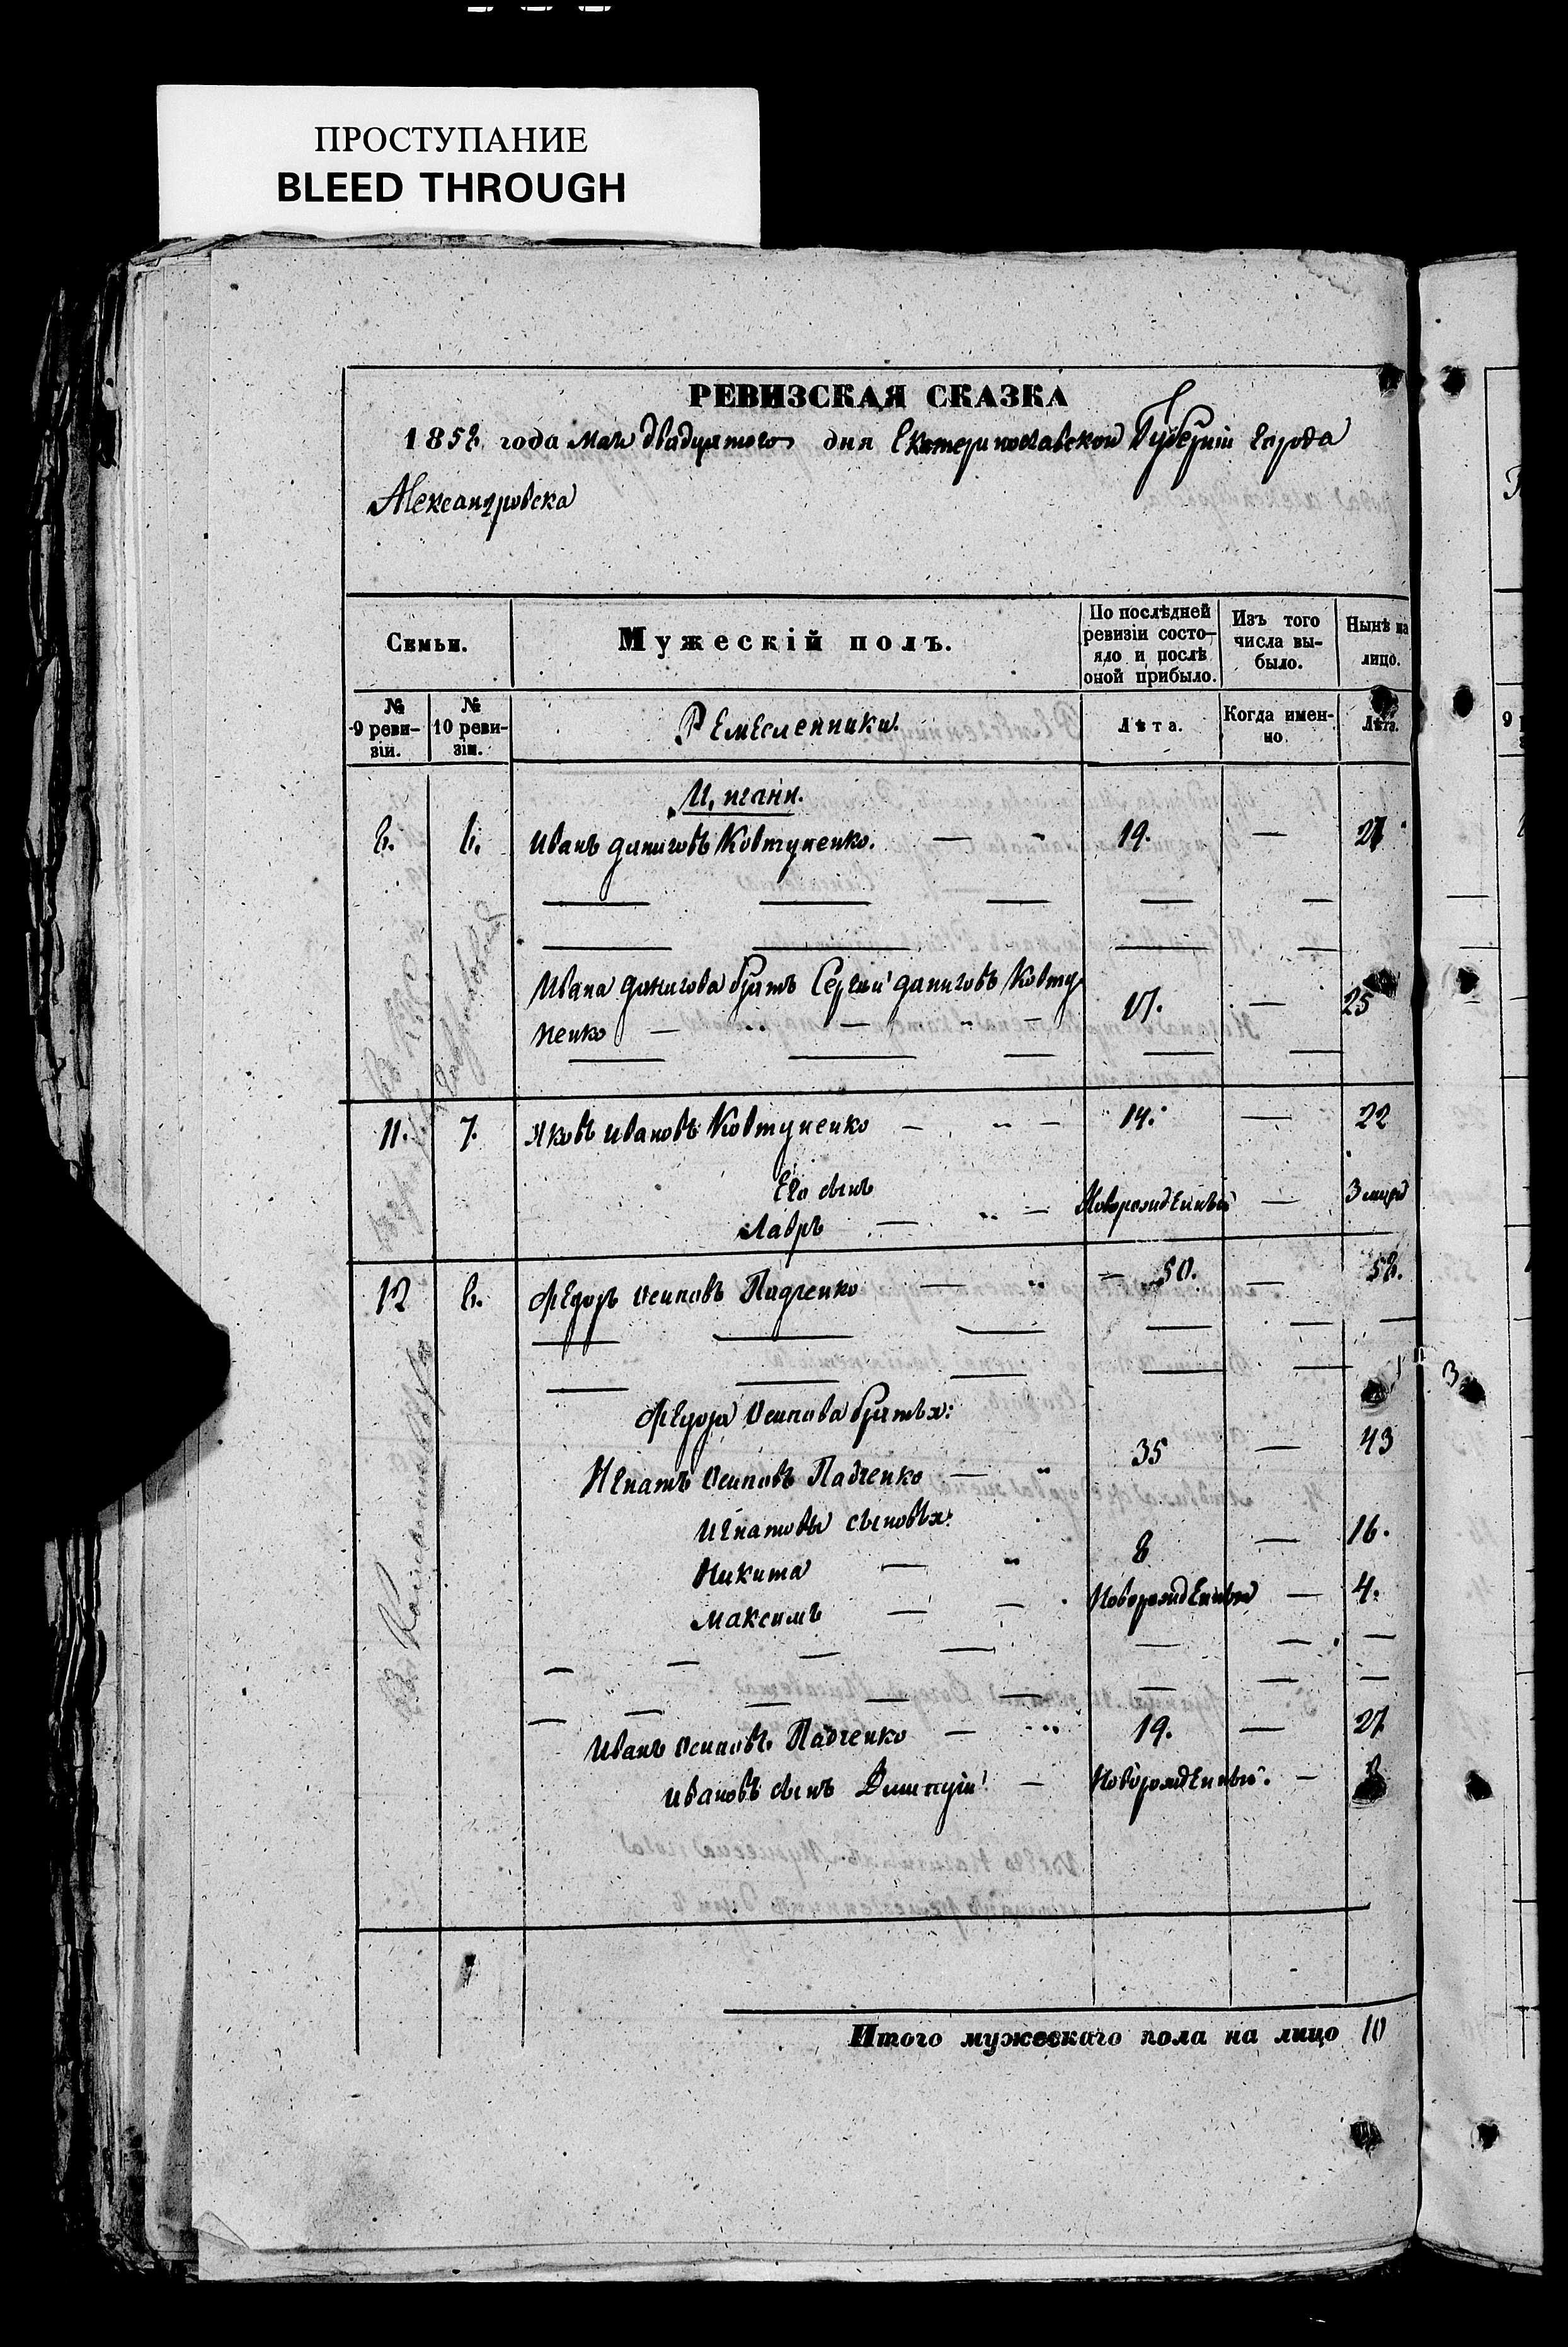 ПРОСТУПАНИЕ
BLEED THROUGH
РЕВИЗСКАЯ СКАЗКА
1858 года мая двадцатого дня Екатеринославской Губерніи города
Александровска
Семьи.
Мужескій полъ.
По послѣдней ревизіи состо-
яло и послѣ
оной прибыло.
Изъ того
числа вы-
было.
Нынѣ на
лицо.
№
9 реви-
зіи.
№
10 реви-
зіи.
Ремесленники.
Лѣта.
Когда имен-
но.
Лѣта.
Цигани.
8. 6. Иванъ Даниловъ Ковтуненко. — 19. — 27
Ивана Данилова братъ Сергій Даниловъ Ковту
ненко — 17. — 25
11. 7. Яковъ Ивановъ Ковтуненко — 14. — 22
Его сынъ
Лавръ — Новорожденный — 3
12 8. Федоръ Осиповъ Падченко — 50. — 58.
Федора Осипова братья:
Игнатъ Осиповъ Падченко — 35 — 43
Игнатовы сыновья:
Никита — 8 — 16.
Максимъ — Новорожденный — 4.
Иванъ Осиповъ Падченко — 19. — 27
Ивановъ сынъ Дмитрій — Новорожденный. —
Итого мужескаго пола на лицо 10